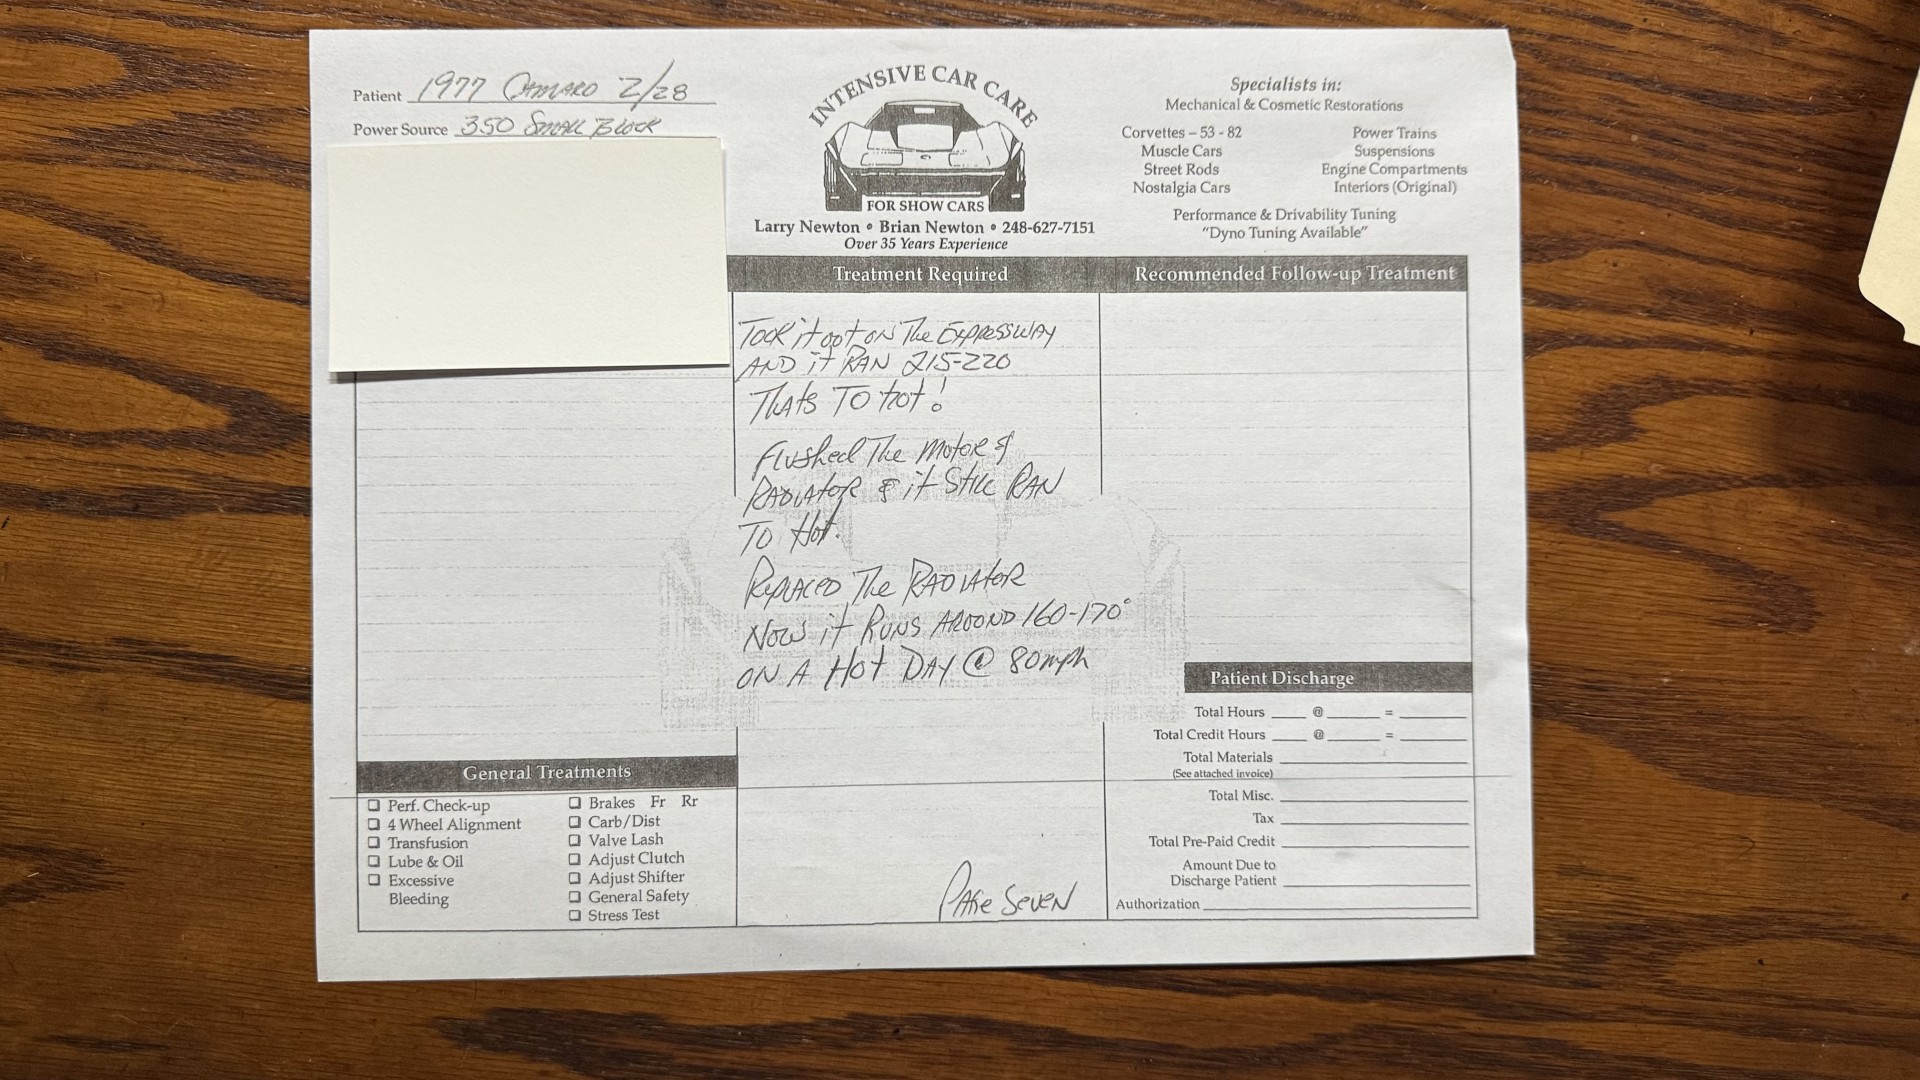 Patient 1977 CAMARO Z/28
Power Source 350 SMALL BLOCK
INTENSIVE CAR CARE
FOR SHOW CARS
Larry Newton • Brian Newton • 248-627-7151
Over 35 Years Experience
Specialists in:
Mechanical & Cosmetic Restorations
Corvettes – 53 - 82
Muscle Cars
Street Rods
Nostalgia Cars
Power Trains
Suspensions
Engine Compartments
Interiors (Original)
Performance & Drivability Tuning
"Dyno Tuning Available"
Treatment Required
TOOK it out ON The EXPRESSWAY
AND it RAN 215-220
ThAts TO hot!
Flushed The Motor &
RADIAtOR & it Still RAN
TO Hot.
REPLACED The RADIAtOR
NOW it RUNS AROUND 160-170°
ON A Hot DAY @ 80mph
PAGE SEVEN
Recommended Follow-up Treatment
General Treatments
Perf. Check-up
4 Wheel Alignment
Transfusion
Lube & Oil
Excessive
Bleeding
Brakes Fr Rr
Carb/Dist
Valve Lash
Adjust Clutch
Adjust Shifter
General Safety
Stress Test
Patient Discharge
Total Hours ____ @ ______ = ________
Total Credit Hours ____ @ ______ = ________
Total Materials
(See attached invoice)
Total Misc.
Tax
Total Pre-Paid Credit
Amount Due to
Discharge Patient
Authorization